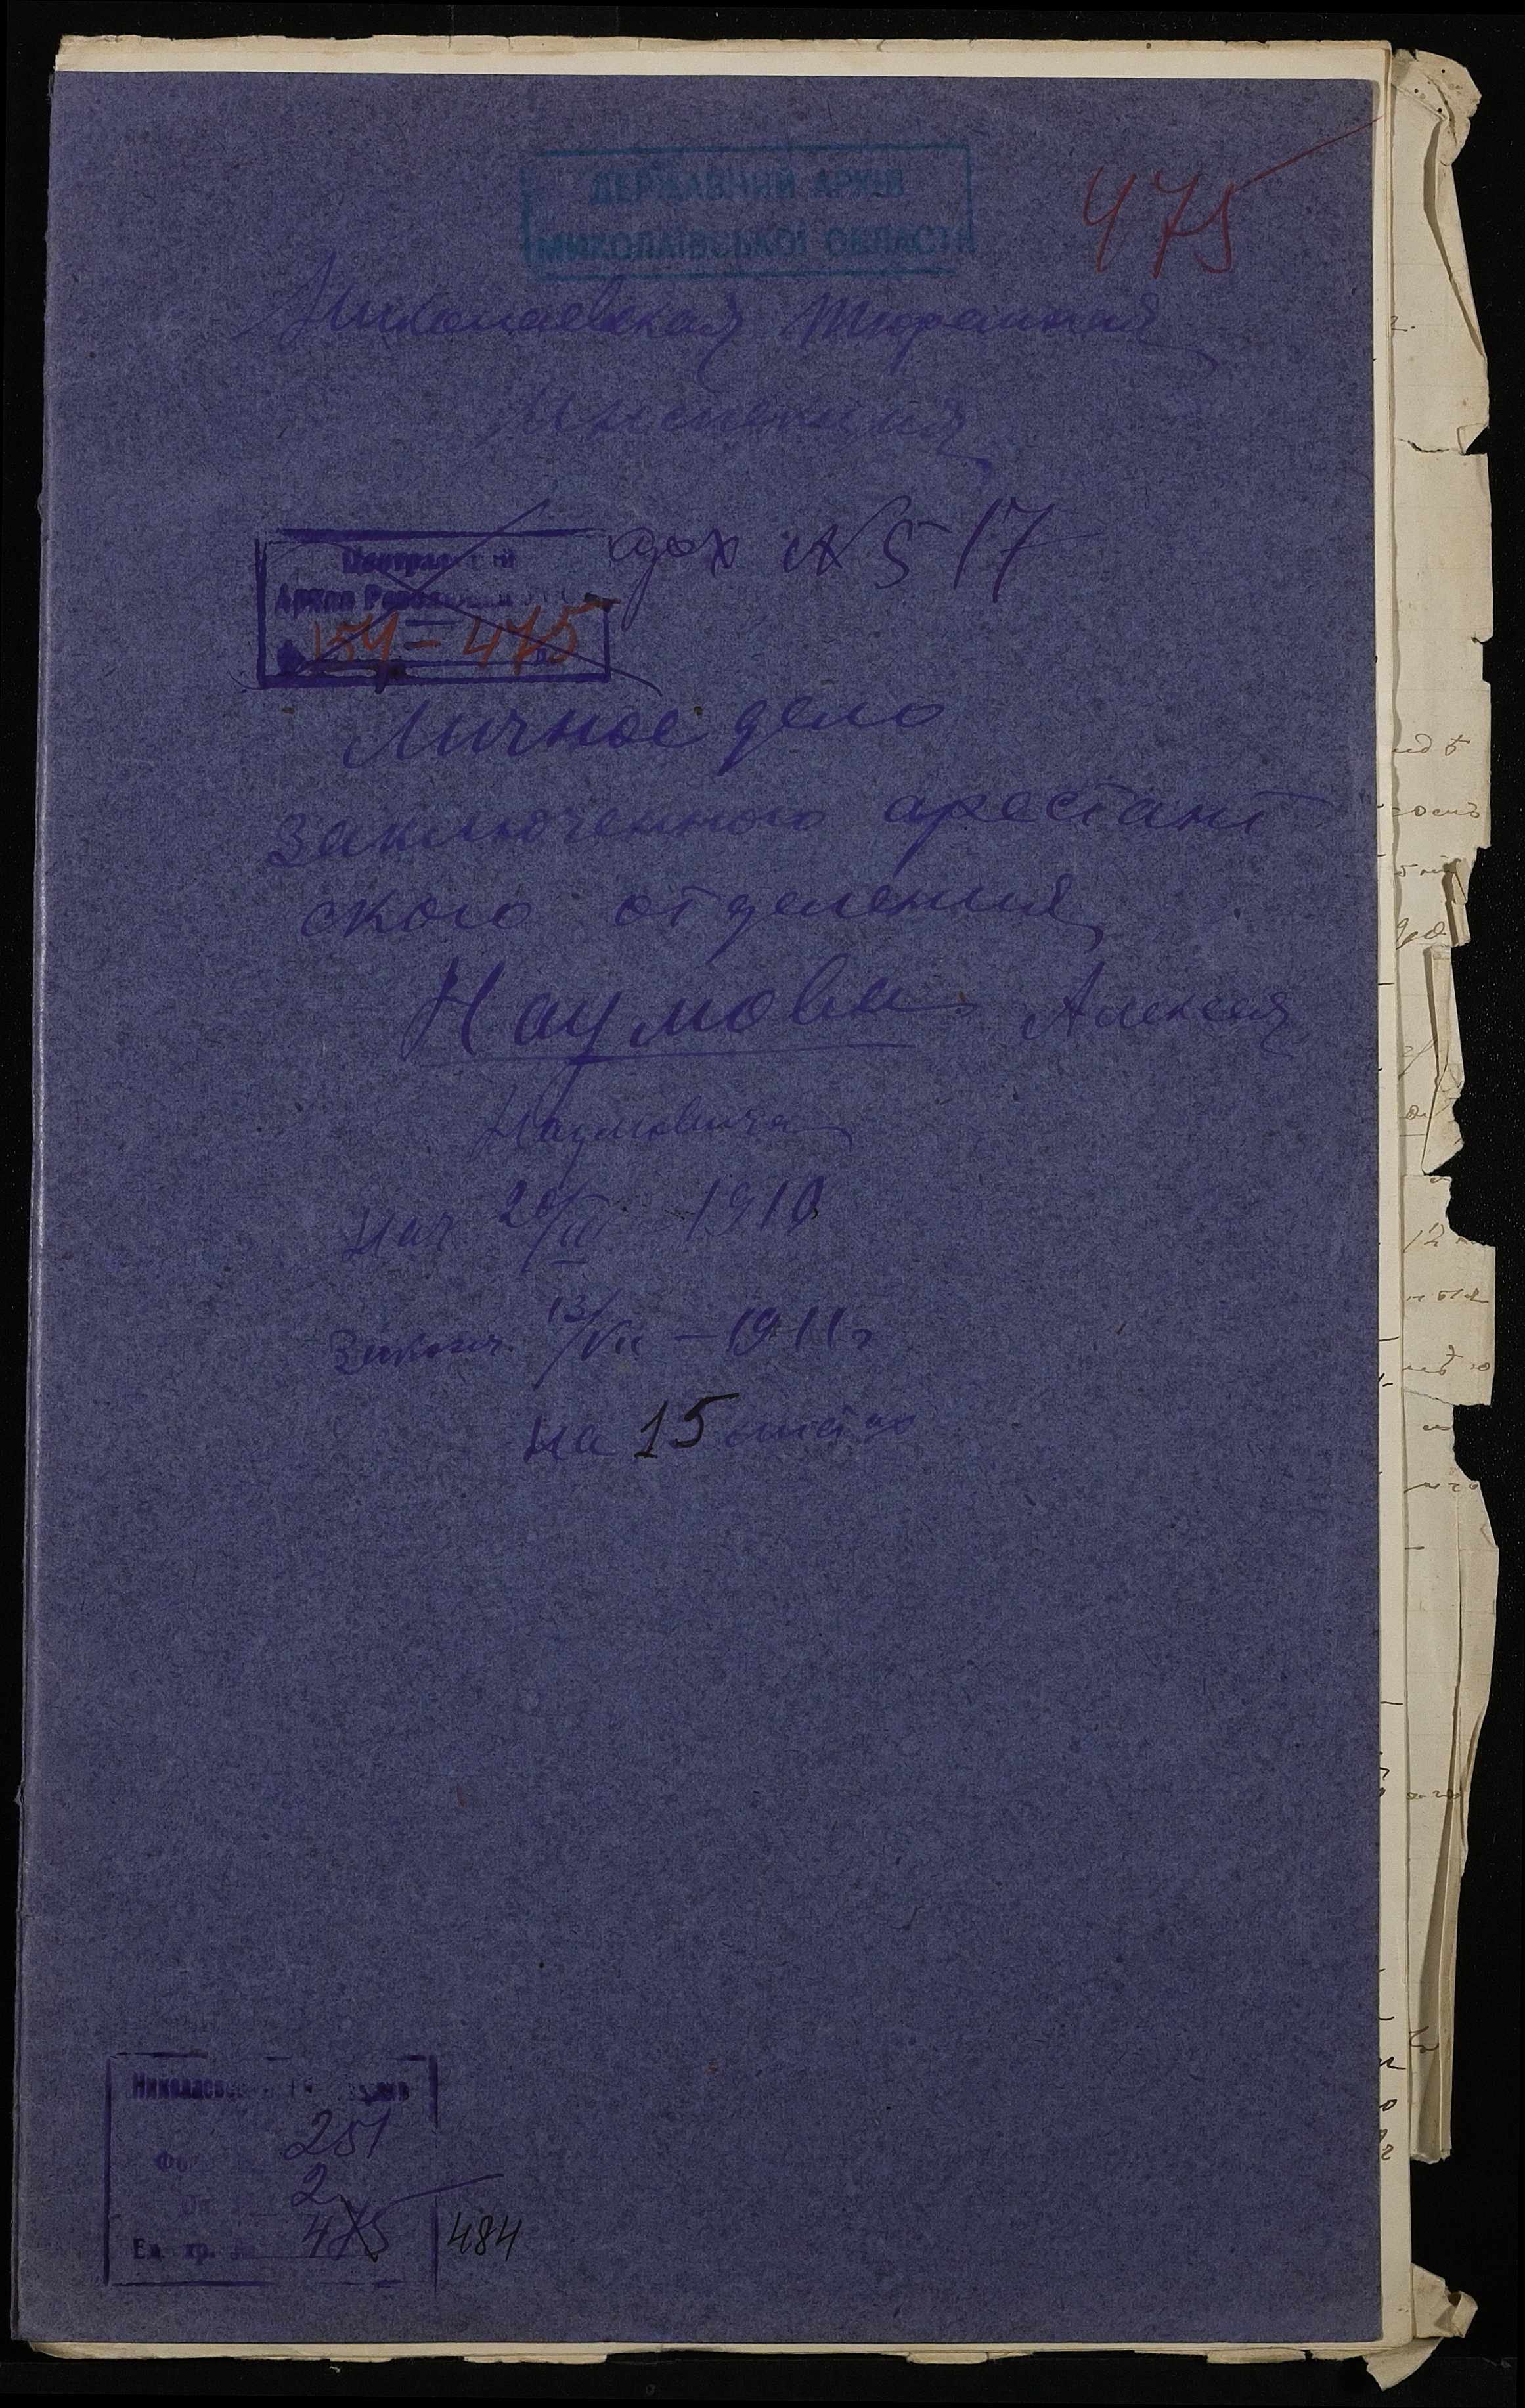 ДЕРЖАВНИЙ АРХІВ
МИКОЛАЇВСЬКОЇ ОБЛАСТІ
475
Николаевская Тюремная
Инспекция
арх № 517
Центральный
Архив Революции
475
Личное дело
заключенного арестант
ского отделения
Наумова Алексея
Наумовича
Нач 20/III 1910
Законч. 13/VII – 1911 г
На 15 листах
251
2
Ед. хр. № 475 484